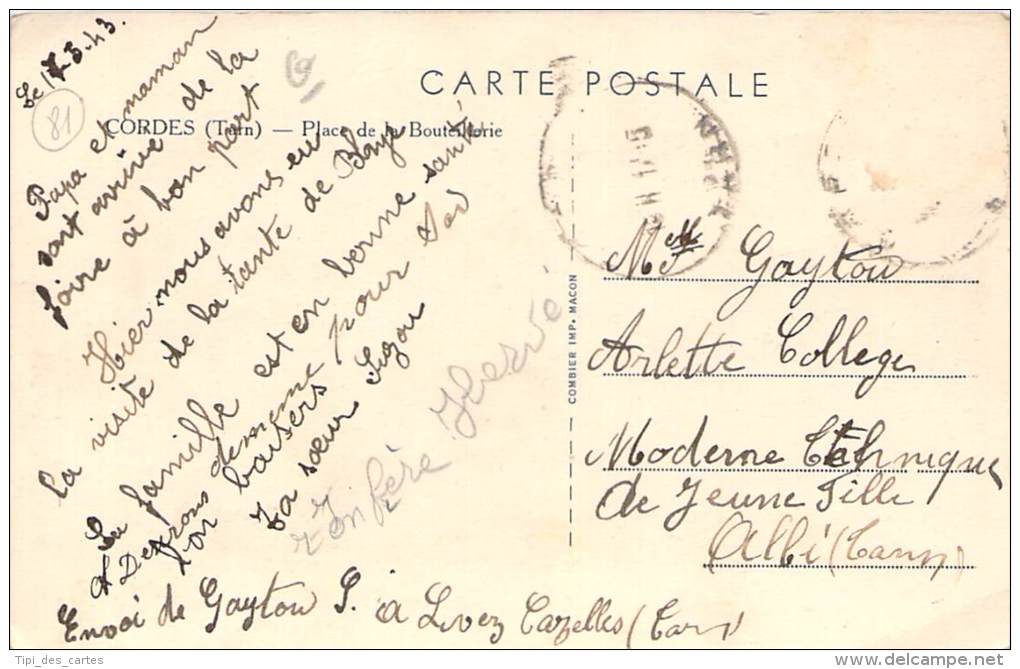 CARTE POSTALE
CORDES (Tarn) — Place de la Bouteillerie
81
Le 17-5-43.
Papa et maman
sont arrivé de la
foire à bon port
Hier nous avons eu
la visite de la tante de Blaye
La famille est en bonne santé
Desirons de meme pour
baisers
Ta sœur Suzou
Ton frère Hervé
Envoi de Gaytou S. à Livez Cazelles (Tarn)
COMBIER IMP. MACON
Mlle Gaytou
Arlette College
Moderne Technique
de Jeune Fille
Albi (Tarn)
Tipi_des_cartes
delcampe.net